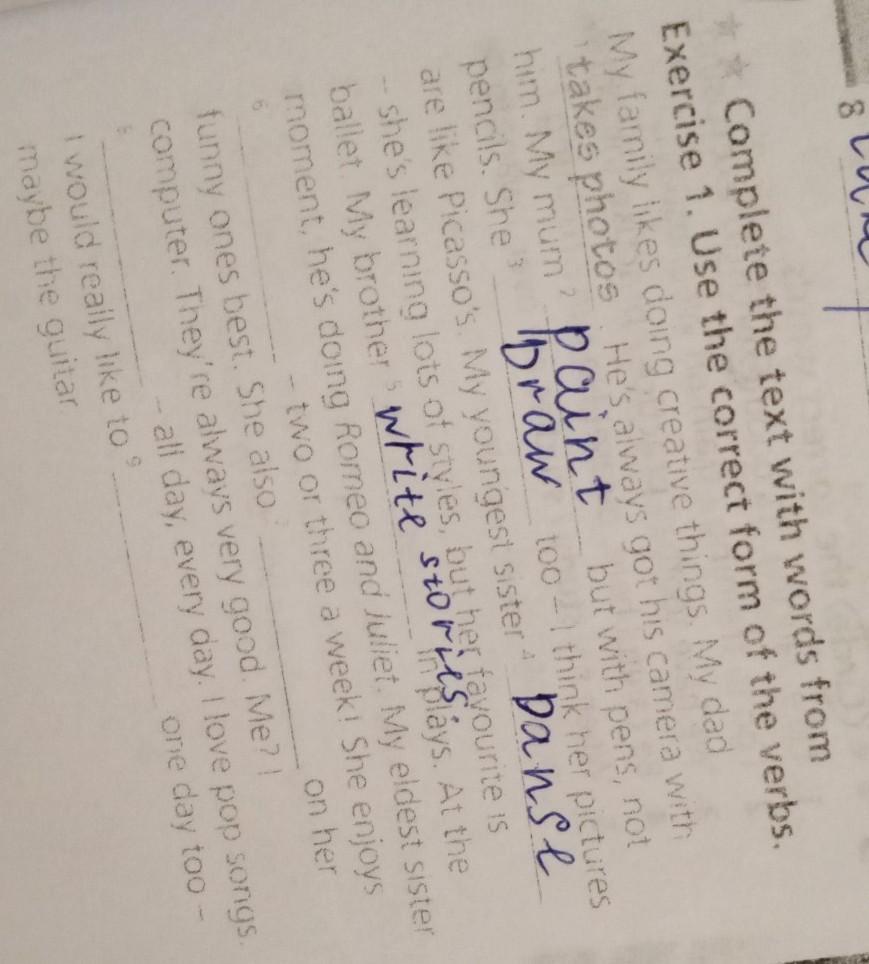 8
★★ Complete the text with words from
Exercise 1. Use the correct form of the verbs.
My family likes doing creative things. My dad
1 takes photos . He's always got his camera with
him. My mum 2 paint but with pens, not
pencils. She 3 braw too – I think her pictures
are like Picasso's. My youngest sister 4 banse
– she's learning lots of styles, but her favourite is
ballet. My brother 5 write stories. in plays. At the
moment, he's doing Romeo and Juliet. My eldest sister
6 – two or three a week! She enjoys
funny ones best. She also on her
computer. They're always very good. Me? I
8 – all day, every day. I love pop songs.
I would really like to 9 one day too –
maybe the guitar